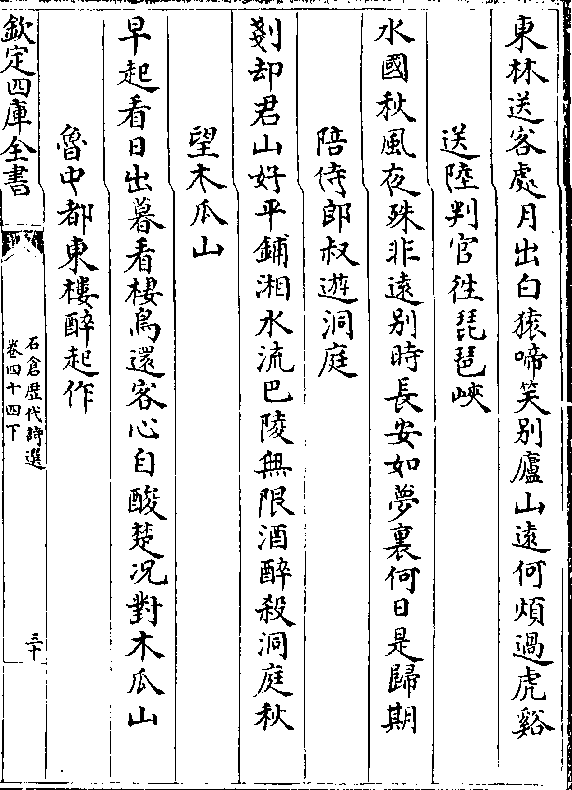 東林送客處月出白猿啼笑別廬山遠何煩過虎谿
送陸判官徃琵琶峽
水國秋風夜殊非遠別時長安如夢裏何日是歸期
陪侍郎叔遊洞庭
剗却君山好平鋪湘水流巴陵無限酒醉殺洞庭秋
望木瓜山
早起看日出暮看棲鳥還客心自酸楚况對木瓜山
魯中都東樓醉起作
欽定四庫全書
石倉歷代詩選
卷四十四下
三十